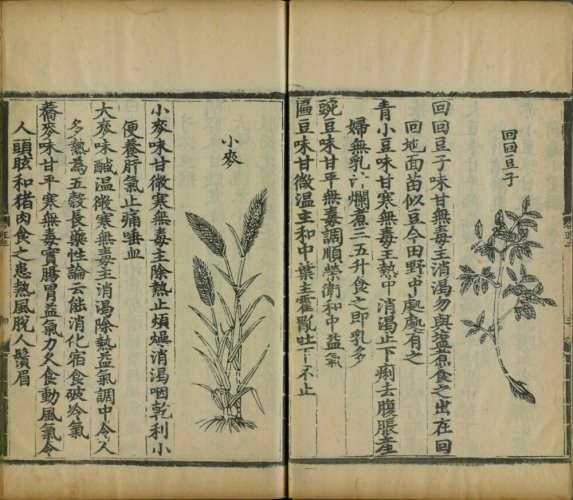 回回豆子
回回豆子味甘無毒主消渴勿與鹽煮食之出在回
回地面苗似豆今田野中處處有之
青小豆味甘寒無毒主熱中消渴止下痢去腹脹產
婦無乳汁爛煮三五升食之即乳多
豌豆味甘平無毒調順榮衛和中益氣
匾豆味甘微溫主和中葉主霍亂吐下不止
小麥
小麥味甘微寒無毒主除熱止煩燥消渴咽乾利小
便養肝氣止痛唾血
大麥味鹹溫微寒無毒主消渴除熱益氣調中令人
多熱為五穀長藥性論云能消化宿食破冷氣
蕎麥味甘平寒無毒實腸胃益氣力久食動風氣令
人頭眩和猪肉食之患熱風脫人鬚眉